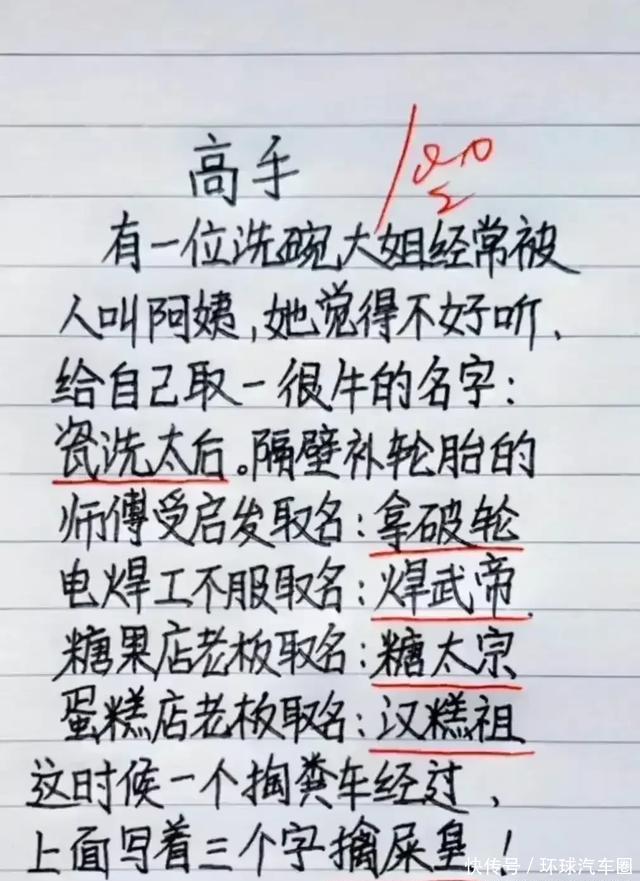 高手
100
有一位洗碗大姐经常被
人叫阿姨,她觉得不好听、
给自己取一很牛的名字:
瓷洗太后。隔壁补轮胎的
师傅受启发取名:拿破轮
电焊工不服取名:焊武帝.
糖果店老板取名:糖太宗
蛋糕店老板取名:汉糕祖
这时候一个掏粪车经过、
上面写着三个字擒屎皇!
快传号/环球汽车圈